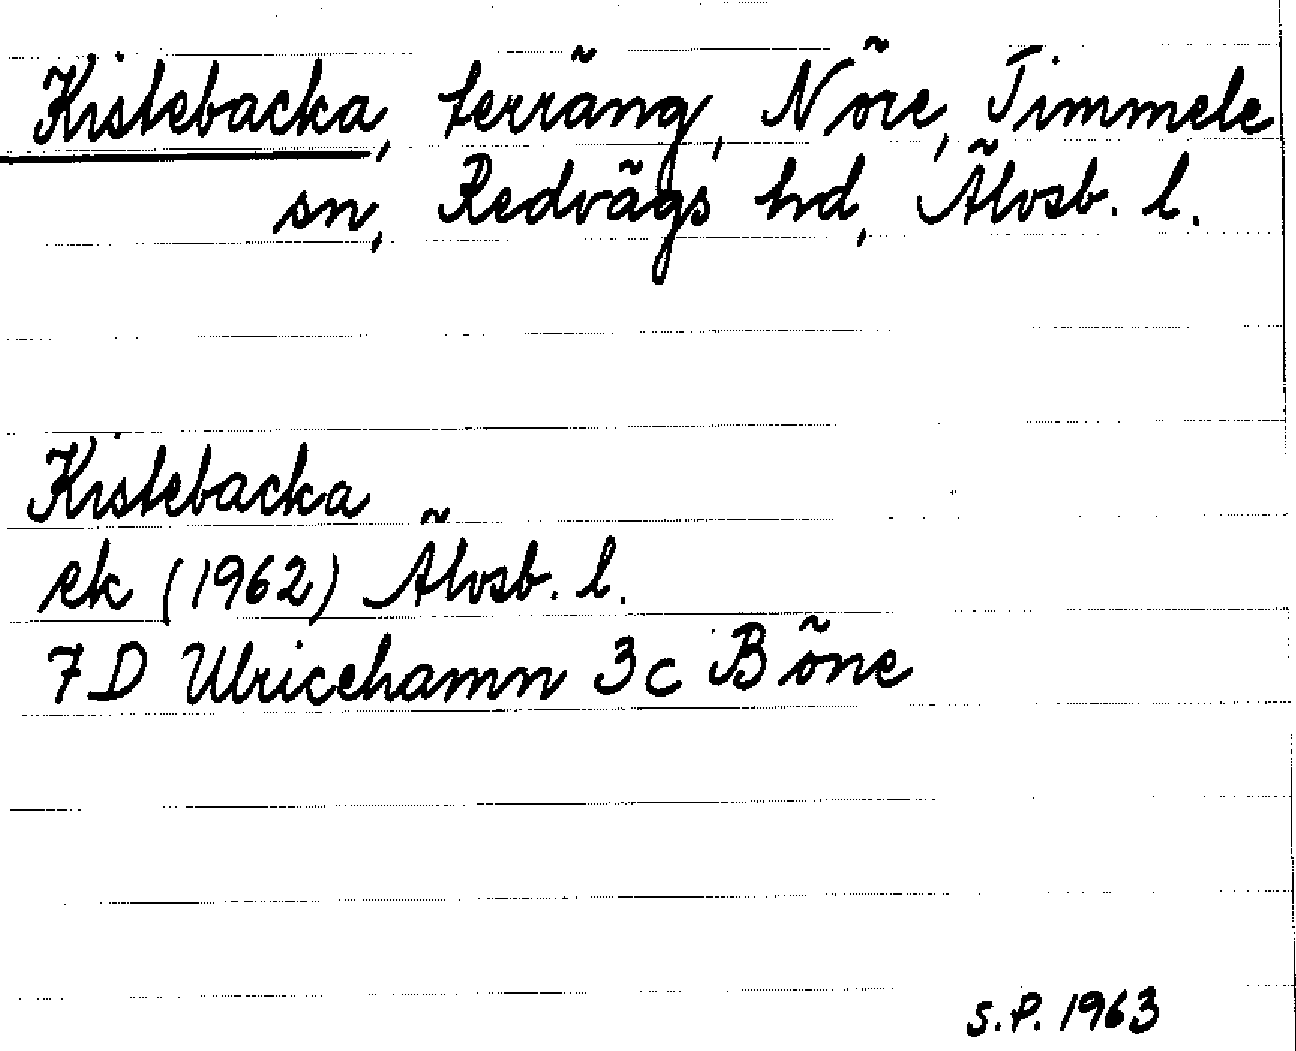 Kistebacka, terräng, Nöre, Timmele
sn, Redvägs hd, Älvsb. l.
Kistebacka
ek (1962) Älvsb. l.
7D Ulricehamn 3c Böne
S.P. 1963